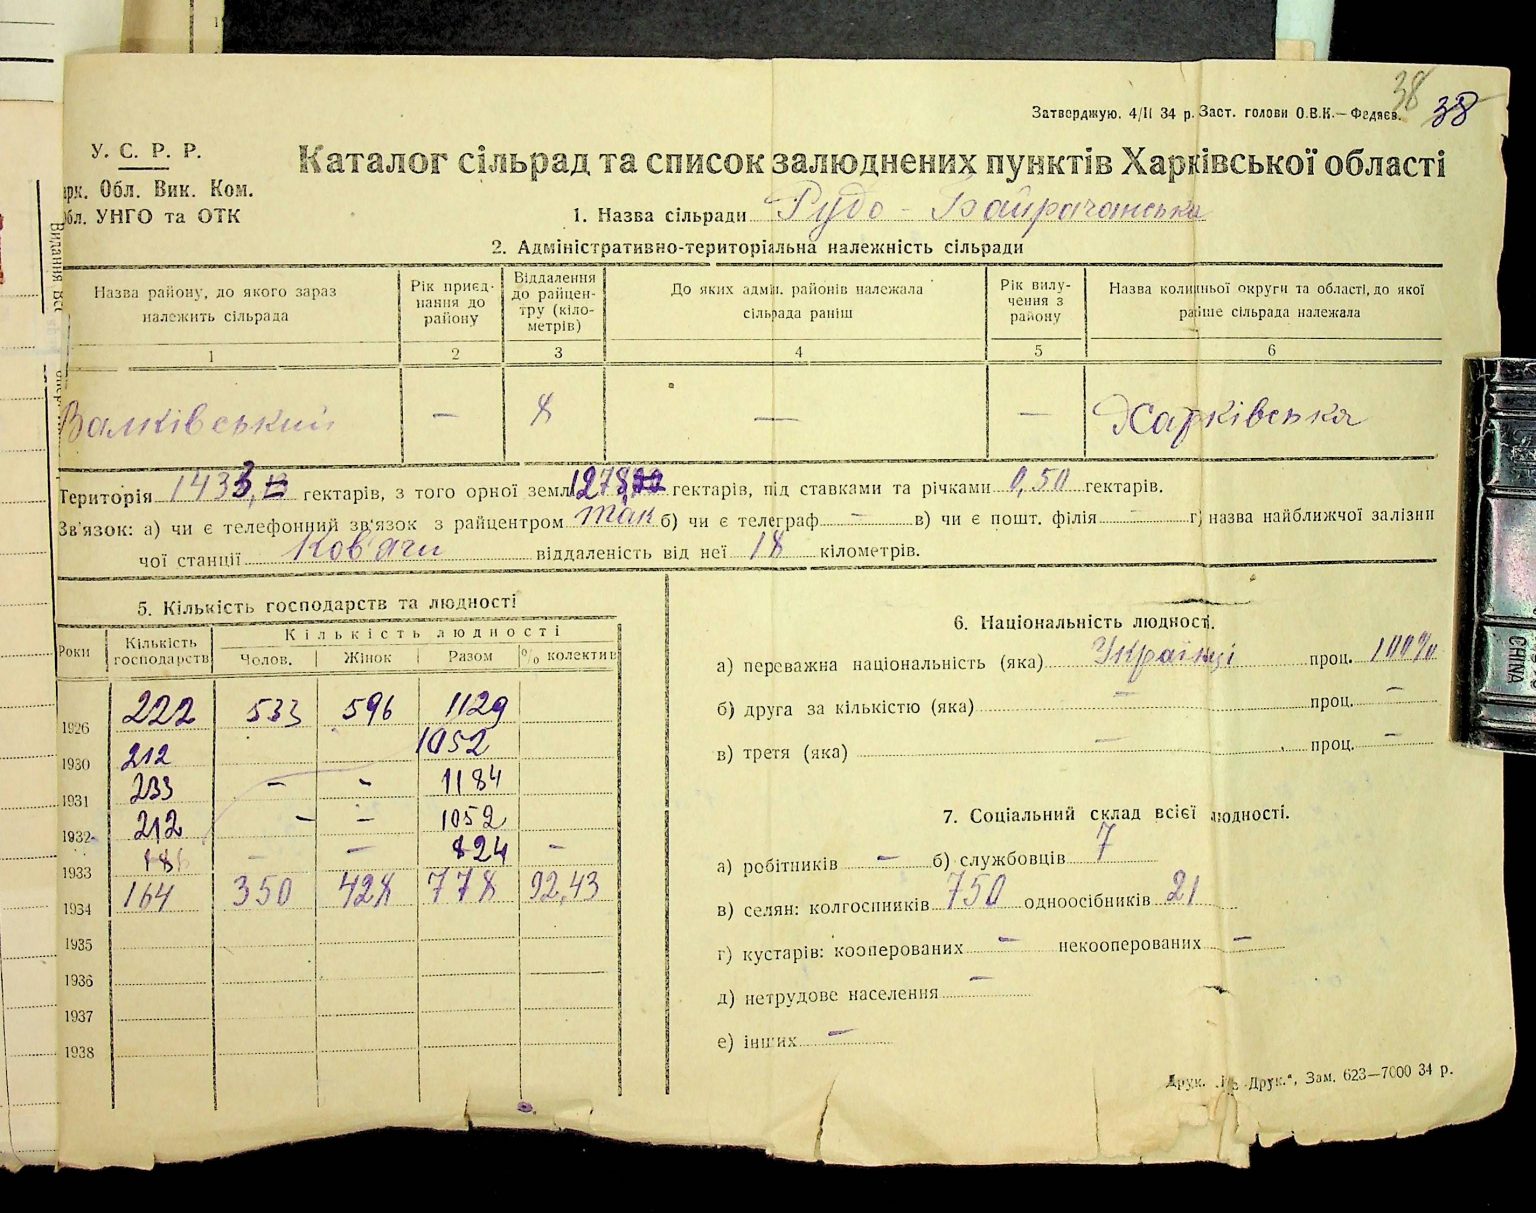 38 38
Затверджую. 4/II 34 р. Заст. голови О.В.К.—Федяєв.
У. С. Р. Р.
арк. Обл. Вик. Ком.
бл. УНГО та ОТК
Каталог сільрад та список залюднених пунктів Харківської області
1. Назва сільради Рудо-Байрачанська
2. Адміністративно-територіальна належність сільради
Назва району, до якого зараз належить сільрада | Рік приєднання до району | Віддалення до райцентру (кілометрів) | До яких адмін. районів належала сільрада раніш | Рік вилучення з району | Назва колишньої округи та області, до якої раніше сільрада належала
1 2 3 4 5 6
Валківський — 8 — — Харківська
Територія 1433, гектарів, з того орної землі 1278, гектарів, під ставками та річками 0,50 гектарів.
Зв'язок: а) чи є телефонний зв'язок з райцентром так б) чи є телеграф — в) чи є пошт. філія — г) назва найближчої залізни
чої станції Ков'яги віддаленість від неї 18 кілометрів.
5. Кількість господарств та людності
Роки | Кількість господарств | Кількість людності
Чолов. | Жінок | Разом | % колектив
1926 222 533 596 1129
1930 212 1052
1931 233 - - 1184
1932 212 - - 1052
1933 - - 824 -
1934 164 350 428 778 92,43
1935
1936
1937
1938
6. Національність людності.
а) переважна національність (яка) Українці проц. 100%
б) друга за кількістю (яка) — проц. —
в) третя (яка) — проц. —
7. Соціальний склад всієї людності.
а) робітників — б) службовців 7
в) селян: колгоспників 750 одноосібників 21
г) кустарів: кооперованих — некооперованих —
д) нетрудове населення —
е) інших —
Друк. Друк.", Зам. 623—7000 34 р.
CHINA